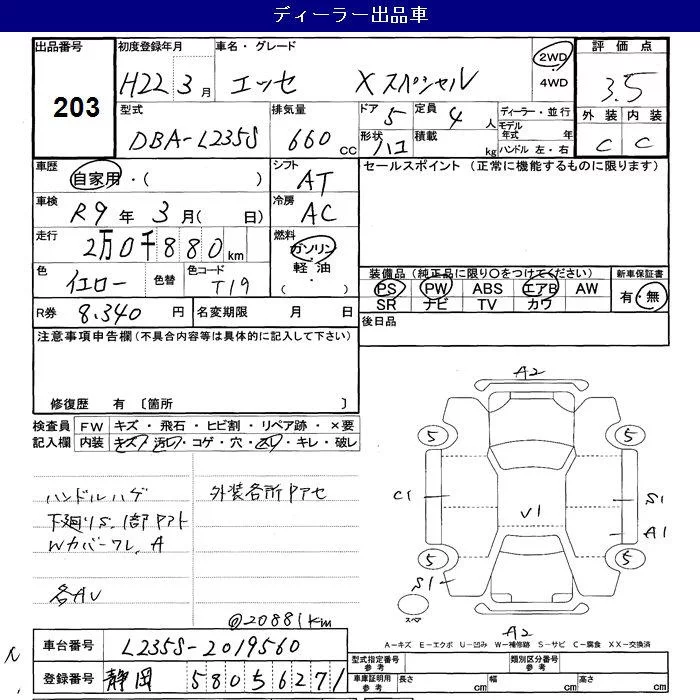 ディーラー出品車
出品番号 初度登録年月 車名・グレード 評価点
203 H22 3月 エッセ Xスペシャル 2WD 4WD 3.5
型式 排気量 ドア 定員 ディーラー・並行 外装 内装
DBA-L235S 660 CC 5 4人 モデル年式 年 C C
形状 ハコ 積載 kg ハンドル 左・右
車歴 シフト セールスポイント(正常に機能するものに限ります)
自家用・( ) AT
車検 冷房
R9年3月( 日) AC
走行 燃料
2万0千880km ガソリン 軽油・( )
色 色替 色コード 装備品(純正品に限り○をつけてください) 新車保証書
イエロー T19 PS PW ABS エアB AW 有・無
SR ナビ TV カワ
R券 8.340円 名変期限 月 日 後日品
注意事項申告欄(不具合内容等は具体的に記入して下さい)
修復歴 有 〔箇所 〕
検査員記入欄 FW キズ・飛石・ヒビ割・リペア跡・×要
内装 キズ・汚レ・コゲ・穴・スレ・キレ・破レ
ハンドルハゲ 外装各所Pアセ
下廻りS.1部Pアト
Wカバーワレ.A
各AU
@20881km
A2
5 5
C1 S1
V1 A1
5 5
S1
スペア A2
A-キズ E-エクボ U-凹み W-補修跡 S-サビ C-腐食 XX-交換済
車台番号 L235S-2019560 型式指定番号 参考 類別区分番号 参考
登録番号 静岡 580 5 6271 車庫証明用 参考 長さ cm 幅 cm 高さ cm